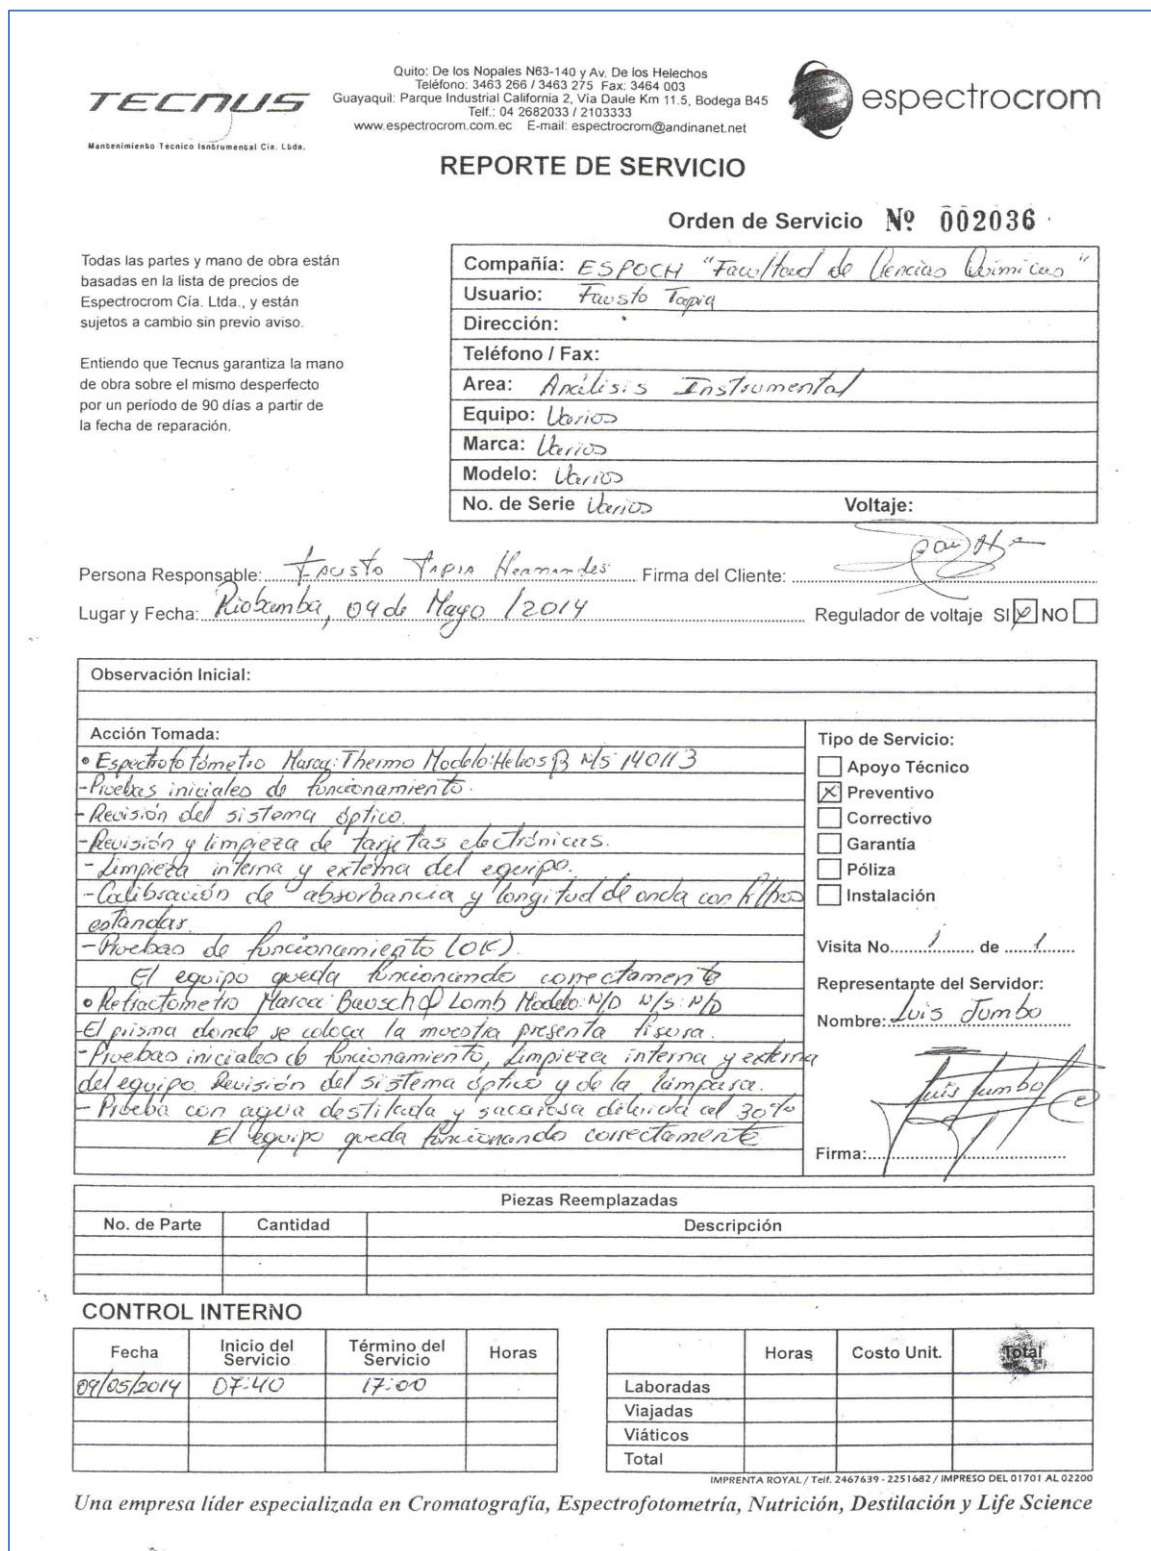 TECNUS
Mantenimiento Tecnico Instrumental Cia. Ltda.
Quito: De los Nopales N63-140 y Av. De los Helechos
Teléfono: 3463 266 / 3463 275 Fax: 3464 003
Guayaquil: Parque Industrial California 2, Vía Daule Km 11.5, Bodega B45
Telf.: 04 2682033 / 2103333
www.espectrocrom.com.ec E-mail: espectrocrom@andinanet.net
espectrocrom
REPORTE DE SERVICIO
Orden de Servicio Nº 002036
Todas las partes y mano de obra están
basadas en la lista de precios de
Espectrocrom Cía. Ltda., y están
sujetos a cambio sin previo aviso.
Entiendo que Tecnus garantiza la mano
de obra sobre el mismo desperfecto
por un período de 90 días a partir de
la fecha de reparación.
Compañía: ESPOCH "Facultad de Ciencias Químicas"
Usuario: Fausto Tapia
Dirección:
Teléfono / Fax:
Area: Análisis Instrumental
Equipo: Varios
Marca: Varios
Modelo: Varios
No. de Serie Varios Voltaje:
Persona Responsable: Fausto Tapia Hernandes Firma del Cliente:
Lugar y Fecha: Riobamba, 09 de Mayo /2014 Regulador de voltaje SI X NO
Observación Inicial:
Acción Tomada:
• Espectrofotómetro Marca: Thermo Modelo: Helios β N/S 140113
- Pruebas iniciales de funcionamiento.
- Revisión del sistema óptico.
- Revisión y limpieza de tarjetas electrónicas.
- Limpieza interna y externa del equipo.
- Calibración de absorbancia y longitud de onda con filtros
estandar.
- Pruebas de funcionamiento (OK).
El equipo queda funcionando correctamente
• Refractómetro Marca: Bausch & Lomb Modelo: N/D N/S: N/D
- El prisma donde se coloca la muestra presenta fisura.
- Pruebas iniciales de funcionamiento, Limpieza interna y externa
del equipo. Revisión del sistema óptico y de la lámpara.
- Prueba con agua destilada y sacarosa diluida al 30%
El equipo queda funcionando correctamente
Tipo de Servicio:
Apoyo Técnico
X Preventivo
Correctivo
Garantía
Póliza
Instalación
Visita No. 1 de 1
Representante del Servidor:
Nombre: Luis Jumbo
Luis Jumbo
Firma:
Piezas Reemplazadas
No. de Parte Cantidad Descripción
CONTROL INTERNO
Fecha Inicio del Servicio Término del Servicio Horas
09/05/2014 07:40 17:00
Horas Costo Unit. Total
Laboradas
Viajadas
Viáticos
Total
IMPRENTA ROYAL / Telf. 2467639 - 2251682 / IMPRESO DEL 01701 AL 02200
Una empresa líder especializada en Cromatografía, Espectrofotometría, Nutrición, Destilación y Life Science